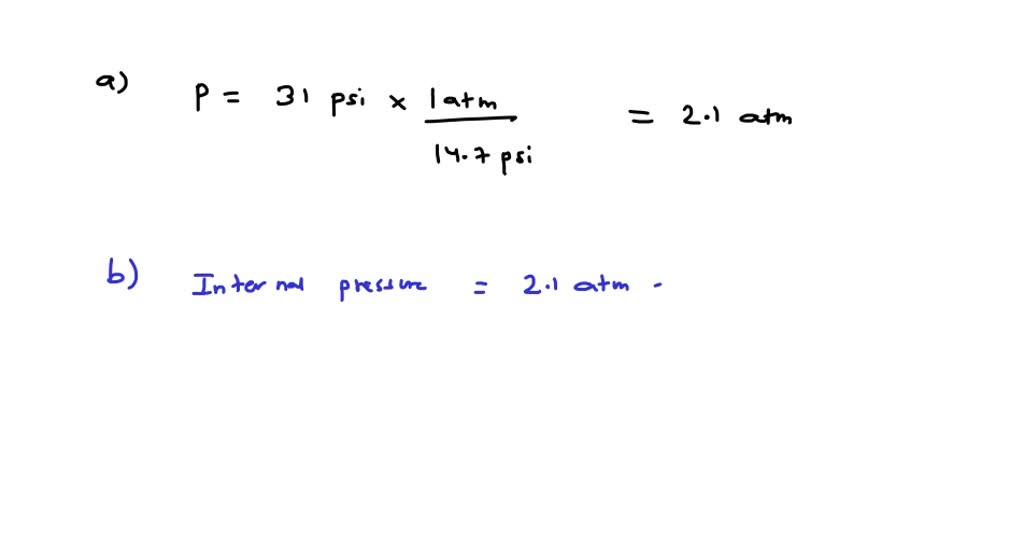 a) P = 31 psi x 1 atm / 14.7 psi = 2.1 atm
b) Internal pressure = 2.1 atm -